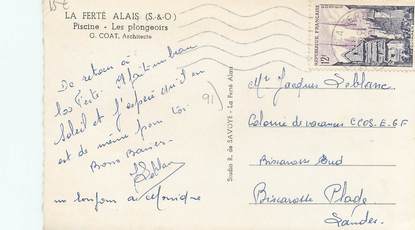 15€
LA FERTÉ ALAIS (S.-&-O)
Piscine - Les plongeoirs
G. COAT, Architecte
De retour à
la Ferté. Il fait un beau
soleil et j'espère qu'il en
est de même pour toi
Bons Baisers.
JLeblanc
91)
Studio R. de SAVOYE - La Ferté Alais
REPUBLIQUE FRANÇAISE
12F
Mr Jacques Leblanc
Colonie de vacances CCOS.E.G.F
Biscarosse Sud
Biscarosse Plage
Landes.